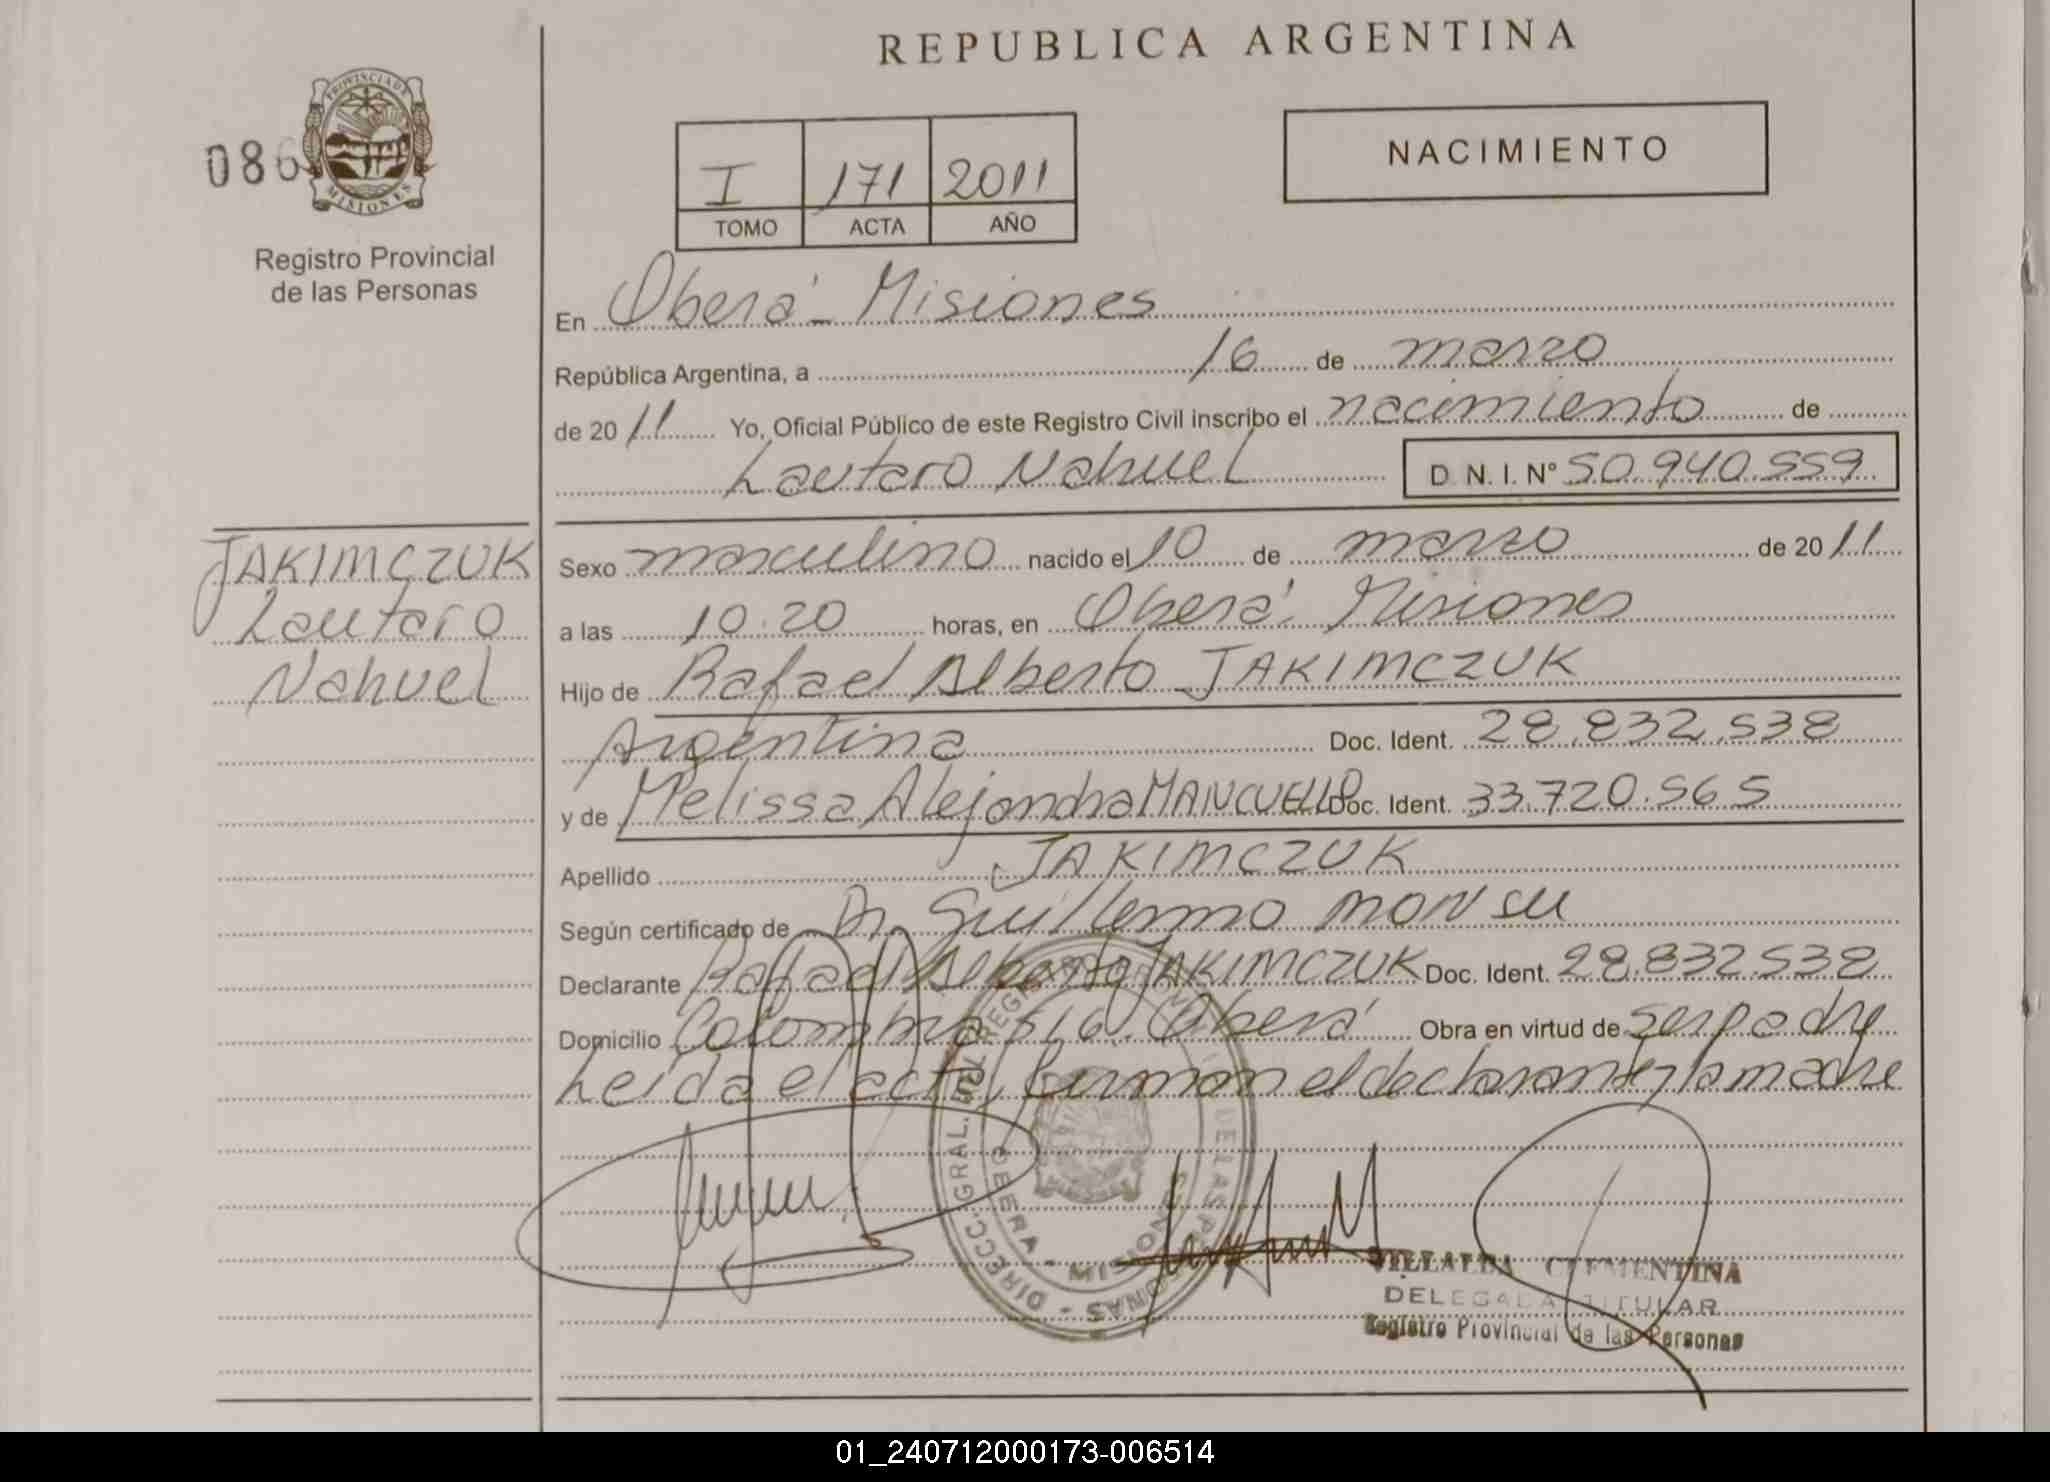 REPUBLICA ARGENTINA
PROVINCIA DE
MISIONES
086
Registro Provincial
de las Personas
I 171 2011
TOMO ACTA AÑO
NACIMIENTO
En Oberá - Misiones
República Argentina, a 16 de marzo
de 2011 Yo, Oficial Público de este Registro Civil inscribo el nacimiento de
Lautaro Nahuel D N. I. Nº 50.940.559.
JAKIMCZUK
Lautaro
Nahuel
Sexo masculino nacido el 10 de marzo de 2011
a las 10.20 horas, en Oberá. Misiones
Hijo de Rafael Alberto JAKIMCZUK
Argentina Doc. Ident. 28.832.538
y de Melissa Alejandra MANCUELLO Doc. Ident. 33.720.565
Apellido JAKIMCZUK
Según certificado de Dr. Guillermo MONSU
Declarante Rafael Alberto JAKIMCZUK Doc. Ident. 28.832.538
Domicilio Colombia 516. Oberá Obra en virtud de ser padre
Leída el acta, firman el declarante y la madre
DIRECC. GRAL. DEL REGISTRO PROVINCIAL DE LAS PERSONAS
MISIONES
VILLALBA CLEMENTINA
DELEGADA TITULAR
Registro Provincial de las Personas
01_240712000173-006514